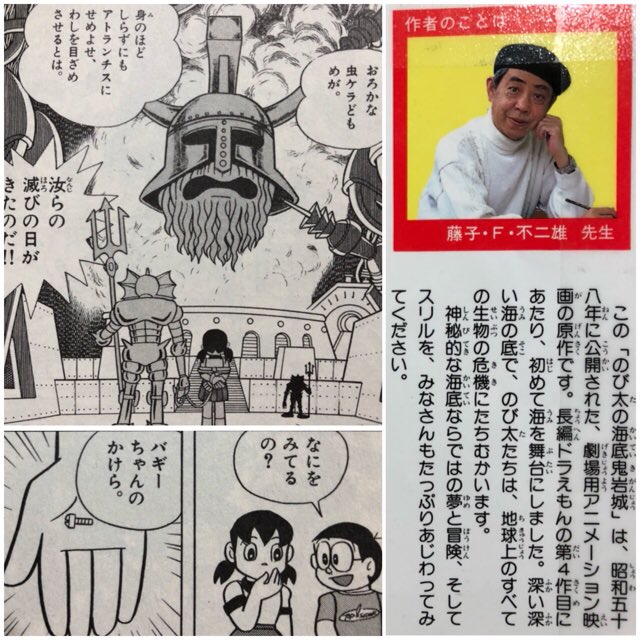 身のほど
しらずにも
アトランチスに
せめよせ、
わしを目ざめ
させるとは。
おろかな
虫ケラども
めが。
汝らの
滅びの日が
きたのだ!!
なにを
みてる
の?
バギー
ちゃんの
かけら。
作者のことば
藤子・F・不二雄 先生
この「のび太の海底鬼岩城」は、昭和五十
八年に公開された、劇場用アニメーション映
画の原作です。長編ドラえもんの第4作目に
あたり、初めて海を舞台にしました。深い深
い海の底で、のび太たちは、地球上のすべて
の生物の危機にたちむかいます。
神秘的な海底ならではの夢と冒険、そして
スリルを、みなさんもたっぷりあじわってみ
てください。